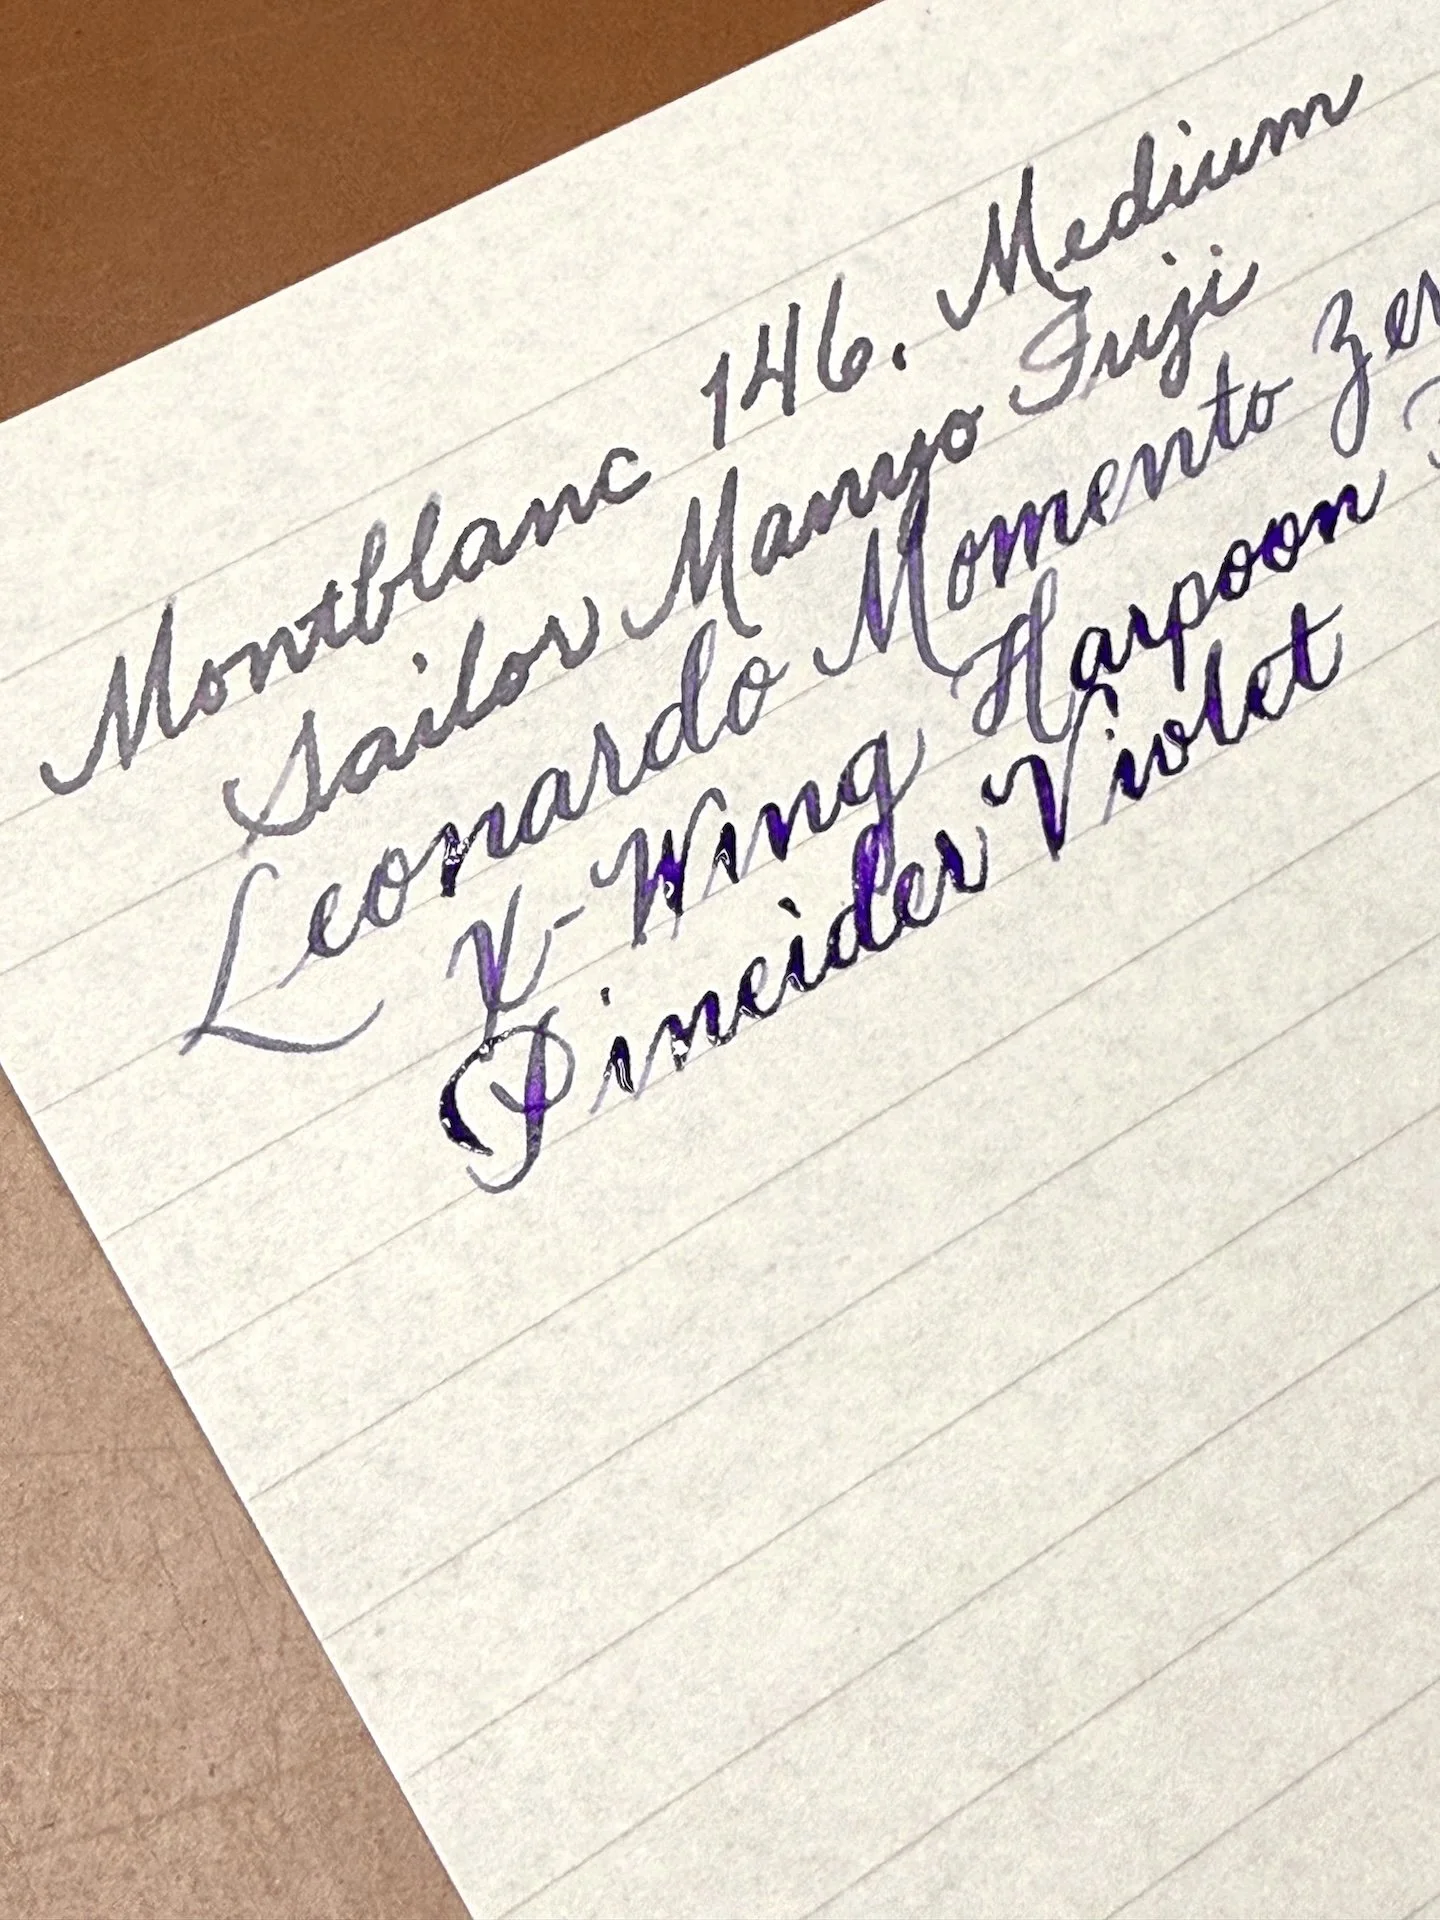 Montblanc 146. Medium
Sailor Manyo Fuji
Leonardo Momento Zer
X-Wing Harpoon
Pineider Violet